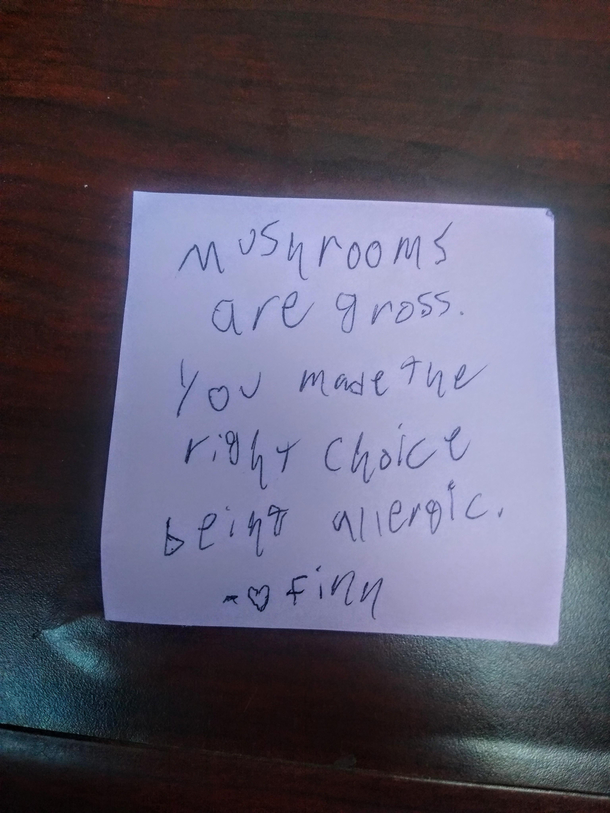 Mushrooms
are gross.
You made the
right choice
being allergic.
-♡ Finn